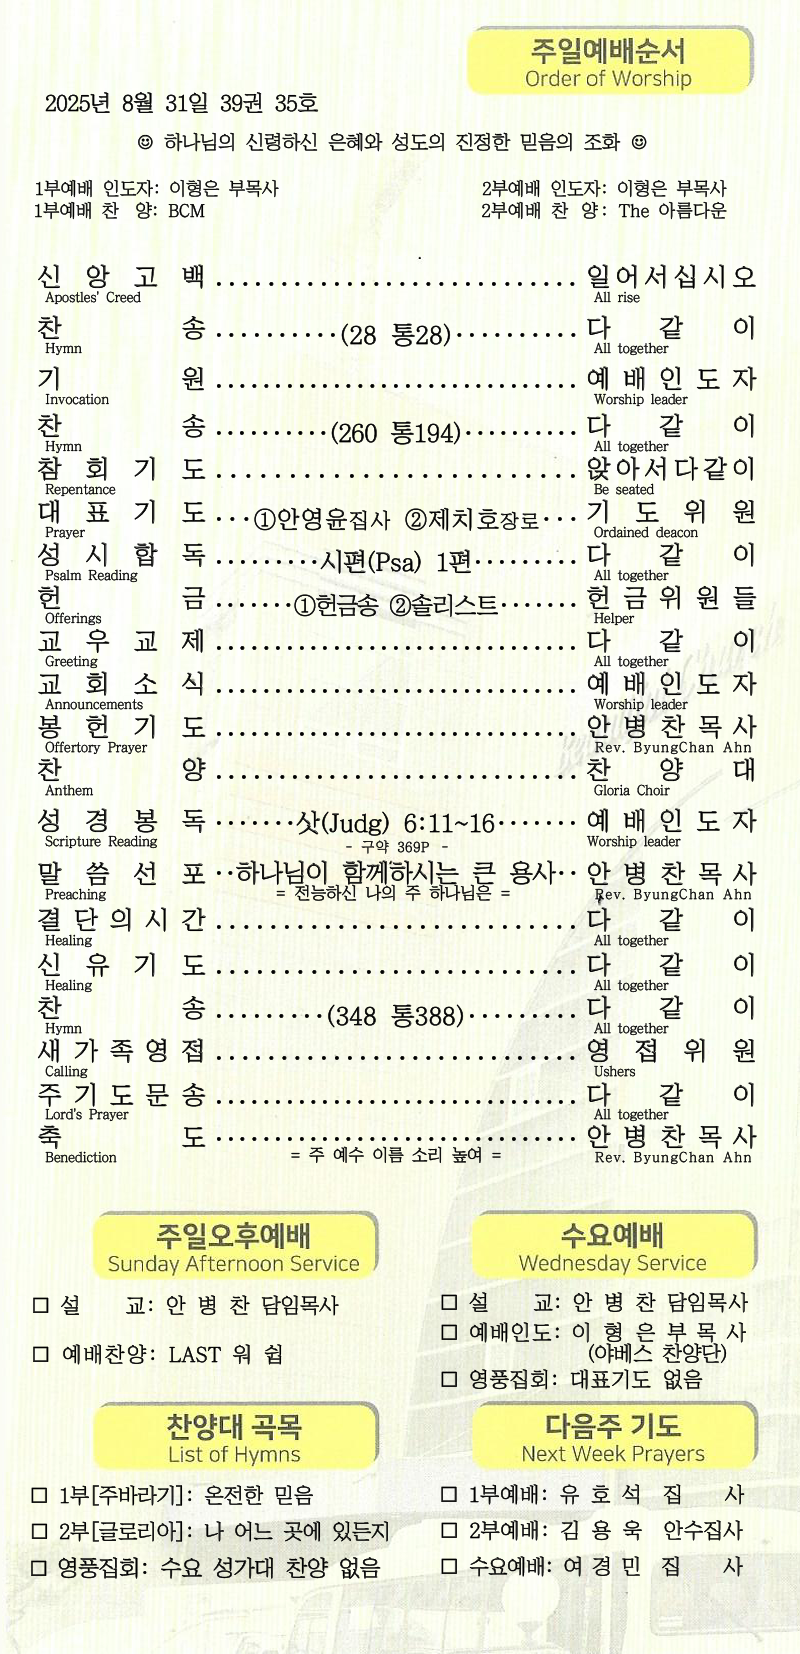 주일예배순서
Order of Worship
2025년 8월 31일 39권 35호
☺ 하나님의 신령하신 은혜와 성도의 진정한 믿음의 조화 ☺
1부예배 인도자: 이형은 부목사 2부예배 인도자: 이형은 부목사
1부예배 찬 양: BCM 2부예배 찬 양: The 아름다운
신 앙 고 백 ............................ 일어서십시오
Apostles' Creed All rise
찬 송 ..........(28 통28).......... 다 같 이
Hymn All together
기 원 ............................ 예배인도자
Invocation Worship leader
찬 송 ..........(260 통194).......... 다 같 이
Hymn All together
참 회 기 도 ............................ 앉아서다같이
Repentance Be seated
대 표 기 도 ...①안영윤집사 ②제치호장로... 기 도 위 원
Prayer Ordained deacon
성 시 합 독 .........시편(Psa) 1편......... 다 같 이
Psalm Reading All together
헌 금 .......①헌금송 ②솔리스트....... 헌금위원들
Offerings Helper
교 우 교 제 ............................ 다 같 이
Greeting All together
교 회 소 식 ............................ 예배인도자
Announcements Worship leader
봉 헌 기 도 ............................ 안병찬목사
Offertory Prayer Rev. ByungChan Ahn
찬 양 ............................ 찬 양 대
Anthem Gloria Choir
성 경 봉 독 .......삿(Judg) 6:11~16....... 예배인도자
Scripture Reading - 구약 369P - Worship leader
말 씀 선 포 ..하나님이 함께하시는 큰 용사.. 안병찬목사
Preaching = 전능하신 나의 주 하나님은 = Rev. ByungChan Ahn
결단의시간 ............................ 다 같 이
Healing All together
신 유 기 도 ............................ 다 같 이
Healing All together
찬 송 ..........(348 통388).......... 다 같 이
Hymn All together
새가족영접 ............................ 영 접 위 원
Calling Ushers
주기도문송 ............................ 다 같 이
Lord's Prayer All together
축 도 ............................ 안병찬목사
Benediction = 주 예수 이름 소리 높여 = Rev. ByungChan Ahn
주일오후예배
Sunday Afternoon Service
□ 설 교: 안 병 찬 담임목사
□ 예배찬양: LAST 워 쉽
수요예배
Wednesday Service
□ 설 교: 안 병 찬 담임목사
□ 예배인도: 이 형 은 부 목 사
(야베스 찬양단)
□ 영풍집회: 대표기도 없음
찬양대 곡목
List of Hymns
□ 1부[주바라기]: 온전한 믿음
□ 2부[글로리아]: 나 어느 곳에 있든지
□ 영풍집회: 수요 성가대 찬양 없음
다음주 기도
Next Week Prayers
□ 1부예배: 유 호 석 집 사
□ 2부예배: 김 용 욱 안수집사
□ 수요예배: 여 경 민 집 사